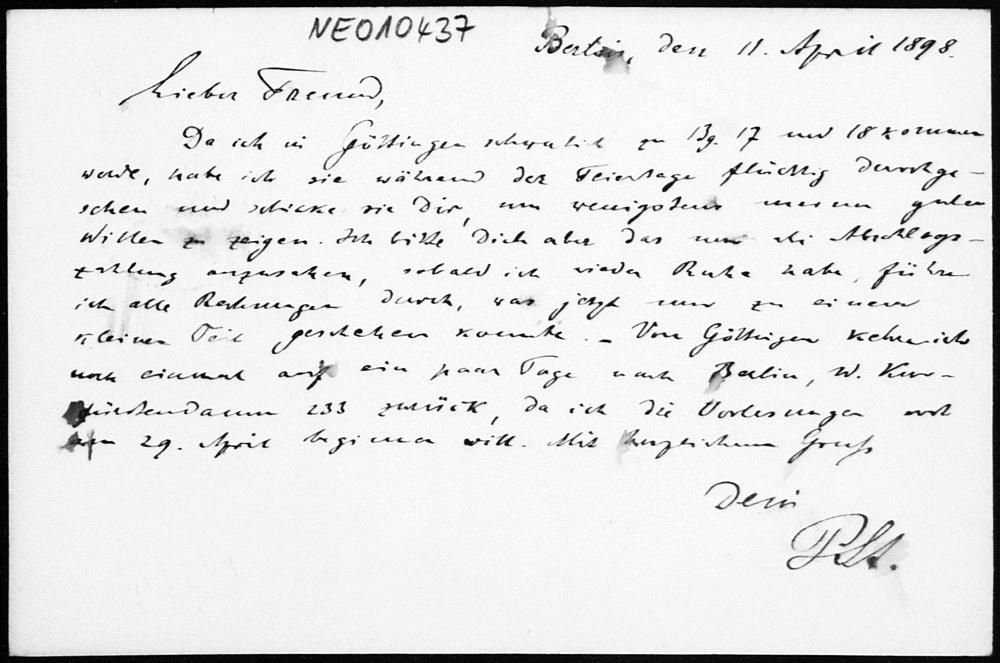 NEO10437
Berlin, den 11. April 1898.
Lieber Freund,
Da ich in Göttingen schwerlich zu Bg. 17 und 18 kommen
werde, habe ich sie während der Feiertage flüchtig durchge-
sehen und schicke sie Dir, um wenigstens meinen guten
Willen zu zeigen. Ich bitte Dich aber das nur als Abschlags-
zahlung anzusehen, sobald ich wieder Ruhe habe, führe
ich alle Rechnungen durch, was jetzt nur zu einem
kleinen Teil geschehen konnte. – Von Göttingen kehre ich
noch einmal auf ein paar Tage nach Berlin, W. Kur-
fürstendamm 233 zurück, da ich die Vorlesungen erst
am 29. April beginnen will. Mit herzlichem Gruß
Dein
P.St.